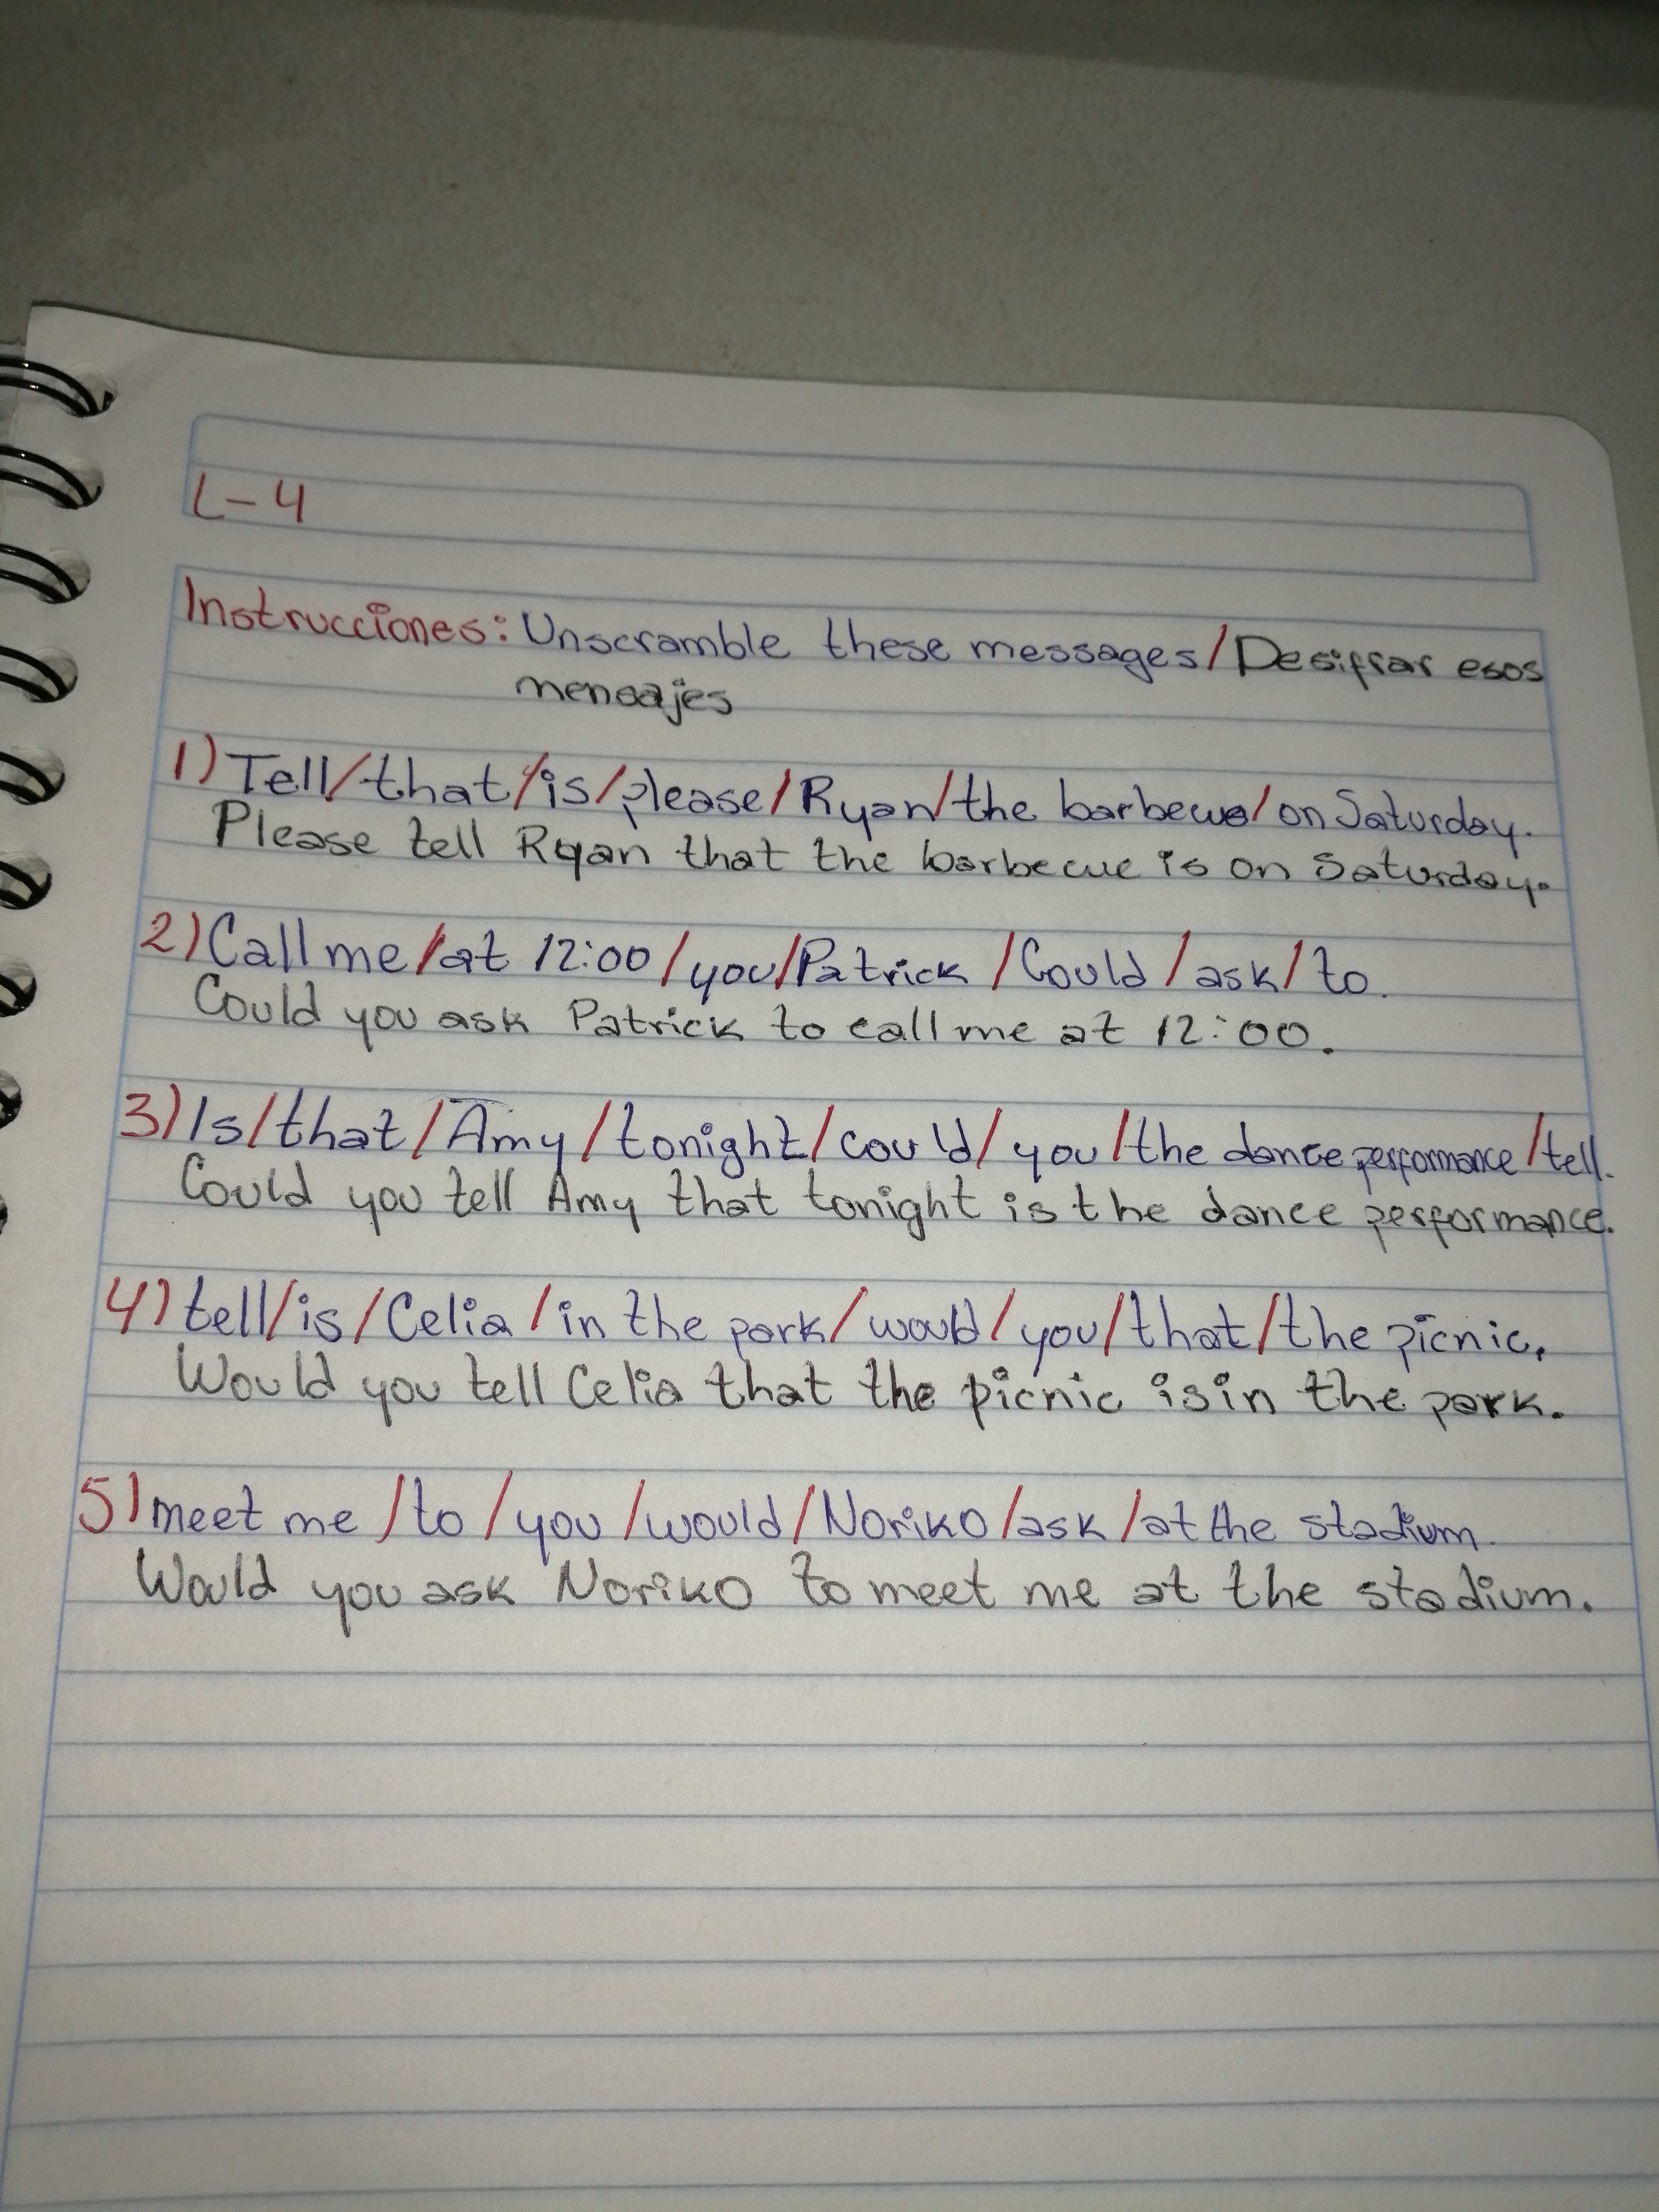 L-4
Instrucciones: Unscramble these messages/Desifrar esos
mensajes
1) Tell/that/is/please/Ryan/the barbecue/on Saturday.
Please tell Ryan that the barbecue is on Saturday.
2) Call me/at 12:00/you/Patrick/Could/ask/to.
Could you ask Patrick to call me at 12:00.
3) Is/that/Amy/tonight/could/you/the dance performance/tell.
Could you tell Amy that tonight is the dance performance.
4) tell/is/Celia/in the park/would/you/that/the picnic.
Would you tell Celia that the picnic is in the park.
5) meet me/to/you/would/Noriko/ask/at the stadium.
Would you ask Noriko to meet me at the stadium.